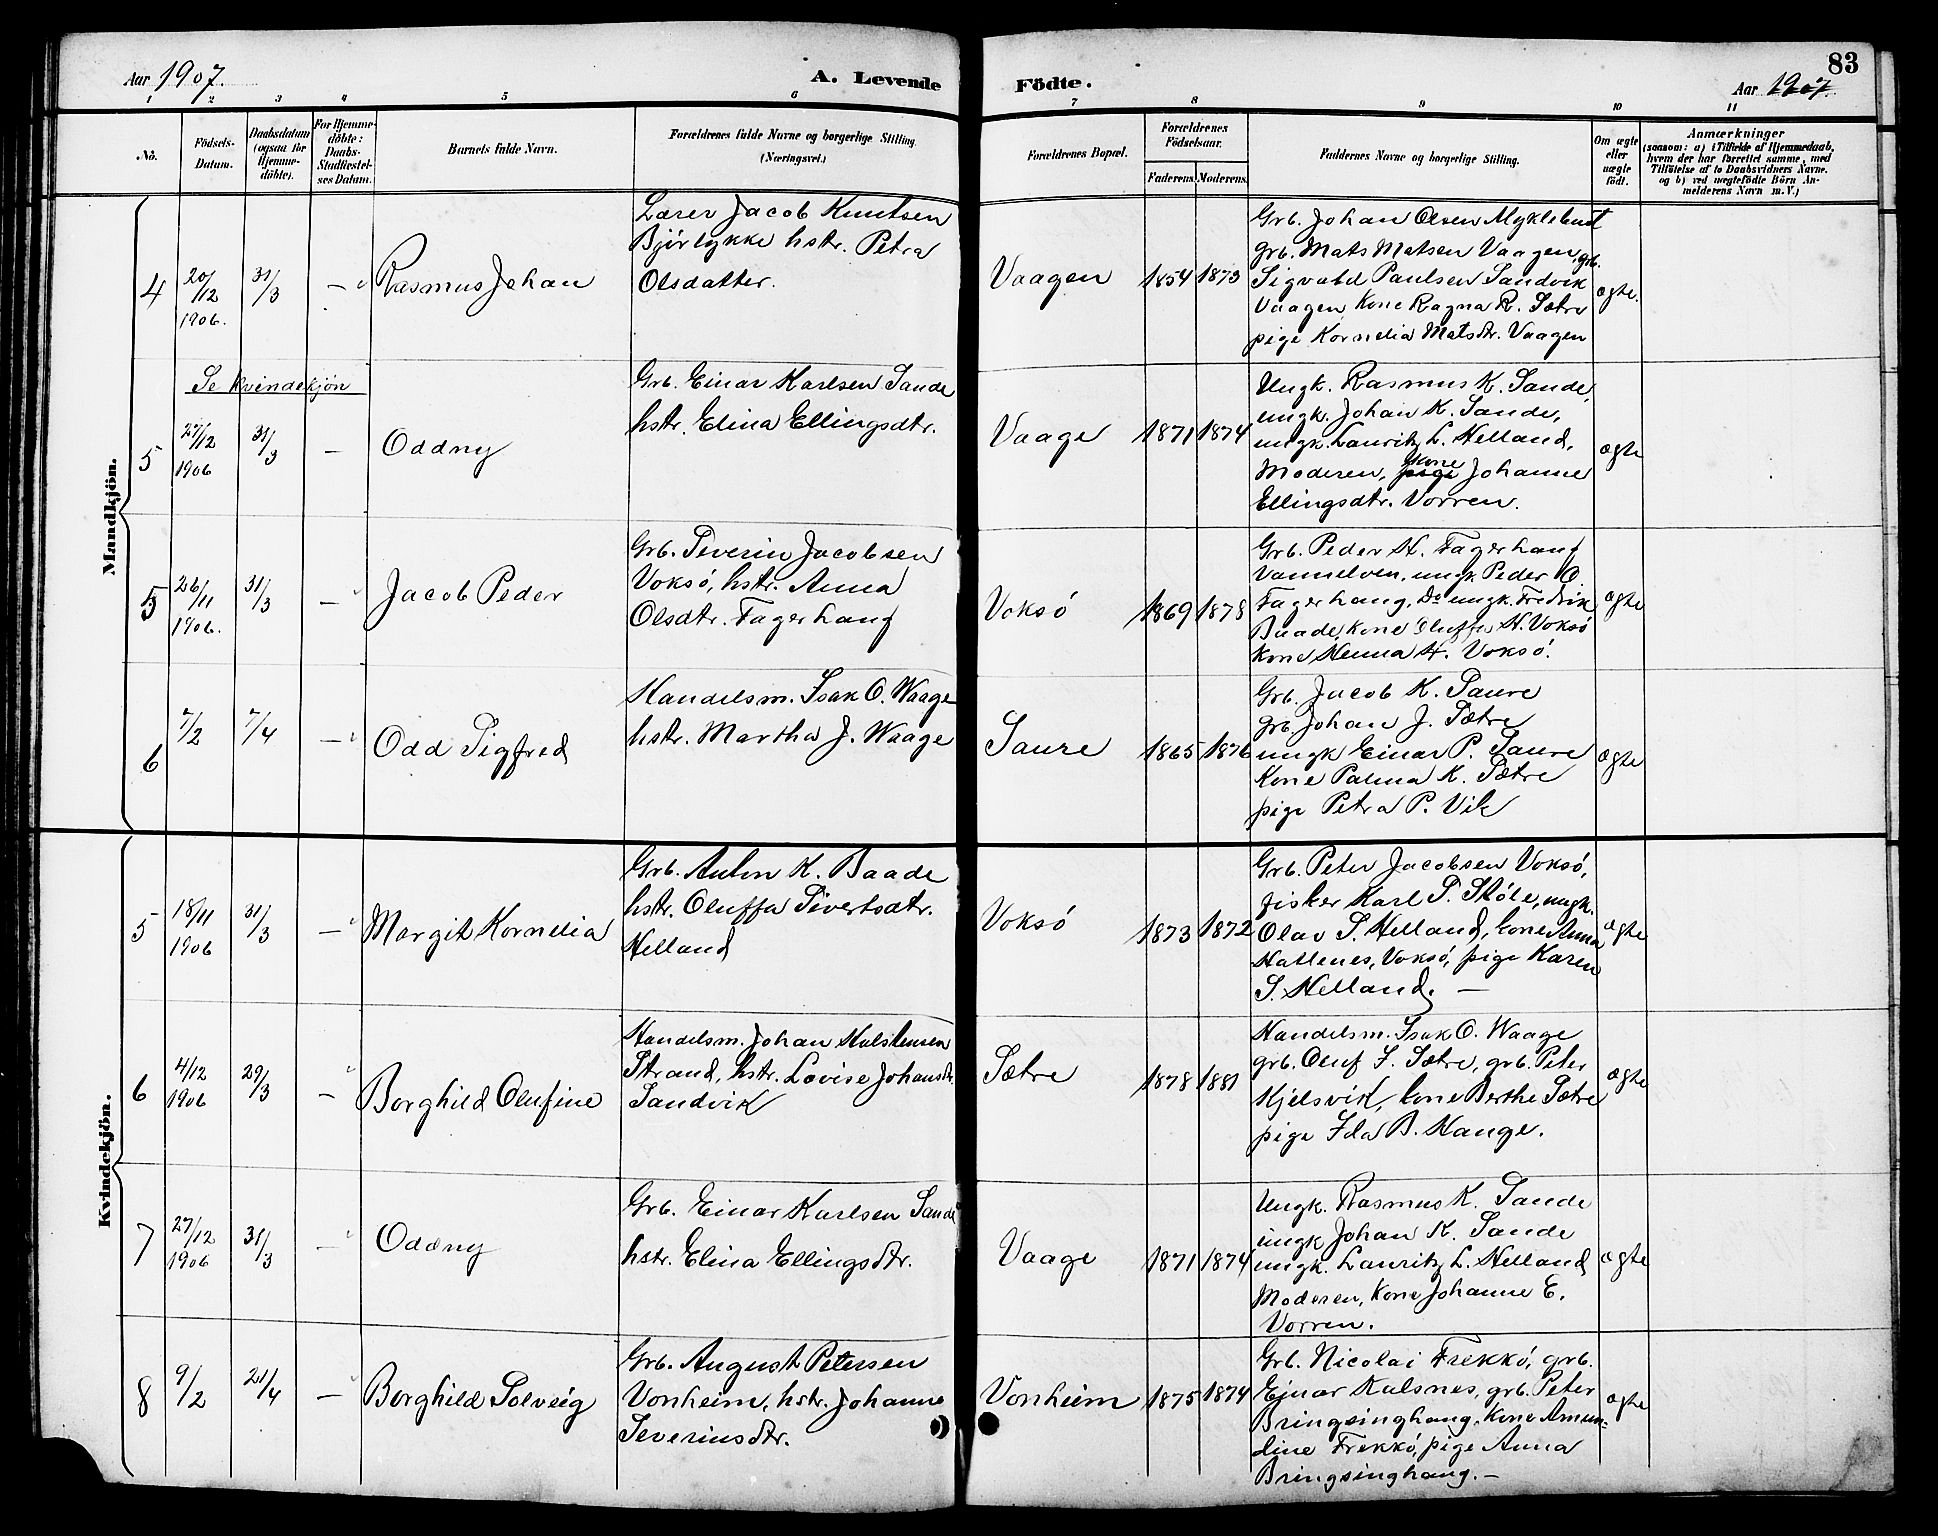 83
Aar 1907.
A. Levende Födte.
Aar 1907.
1 2 3 4 5 6 7 8 9 10 11
No.
Födsels-
Datum.
Daabsdatum
(ogsaa for
Hjemme-
döbte).
For Hjemme-
döbte:
Daabs-
Stadfæstel-
ses Datum.
Barnets fulde Navn.
Forældrenes fulde Navne og borgerlige Stilling.
(Næringsvei.)
Forældrenes Bopæl.
Forældrenes
Födselsaar.
Faderens. Moderens.
Faddernes Navne og borgerlige Stilling.
Om ægte
eller
uægte
födt.
Anmærkninger
(saasom: a) i Tilfælde af Hjemmedaab,
hvem der har forrettet samme, med
Tilföielse af to Daabsvidners Navne,
og b) ved uægtefödte Börn An-
melderens Navn m. V.)
Mandkjön.
4
20/12
1906.
31/3
—
Rasmus Johan
Lærer Jacob Knutsen
Björlykke hstr. Petra
Olsdatter.
Vaagen
1854 1873
Grb. Johan Olsen Myklebust
grb. Mats Matsen Vaagen, grb.
Sigvald Paulsen Sandvik
Vaagen, Kone Ragna R. Sætre
pige Kornelia Matsdtr. Vaagen
ægte.
Se kvindekjön
5
27/12
1906
31/3
—
Oddny
Grb. Einar Karlsen Sande
hstr. Elina Ellingsdtr.
Vaage
1871 1874
Ungk. Rasmus K. Sande,
ungk. Johan K. Sande,
ungk. Lauritz L. Helland,
Moderen, pige kone Johanne
Ellingsdtr. Vorren.
ægte
5
26/11
1906.
31/3
—
Jacob Peder
Grb. Severin Jacobsen
Voksö, hstr. Anna
Olsdtr. Fagerhang
Voksö
1869 1878
Grb. Peder H. Fagerhang
Vannelven, ungk Peder O.
Fagerhang, Do ungk. Fredrik
Baade, kone Oluffa H. Voksö
kone Hanna H. Voksö.
ægte
6
7/2
7/4
—
Odd Sigfred
Handelsm. Isak O. Waage
hstr. Martha J. Waage
Saure
1865 1876
Grb. Jacob K. Saure
grb Johan J. Sætre
ungk Einar P. Saure
Kone Palma K. Sætre
pige Petra P. Vik
ægte
Kvindekjön.
5
18/11
1906
31/3
—
Margit Kornelia
Grb. Anton K. Baade
hstr. Oluffa Sivertsdtr.
Helland
Voksö
1873 1872
Grb. Peter Jacobsen Voksö,
fisker Karl S. Stöle, ungk.
Olav S. Helland, kone Anna
Hatlenes, Voksö, pige Karen
S. Helland. —
ægte
6
4/12
1906
29/3
—
Borghild Olufine
Handelsm. Johan Halstensen
Strand, hstr. Lovise Johansdtr.
Sandvik
Sætre
1878 1881
Handelsm. Isak O. Waage
grb. Oluf J. Sætre, grb. Peter
Kjelsvik, kone Berthe Sætre
pige Ida B. Hauge.
ægte
7
27/12
1906
31/3
—
Oddny
Grb. Einar Karlsen Sande
hstr. Elina Ellingsdtr.
Vaage
1871 1874
Ungk. Rasmus K. Sande
ungk Johan K. Sande
ungk. Lauritz L. Helland
Moderen, Kone Johanne E.
Vorren.
ægte
8
9/2
21/4
—
Borghild Solveig
Grb. August Petersen
Vonheim, hstr. Johanne
Severinsdtr.
Vonheim
1875 1874
Grb. Nicolai Frekkö, grb.
Ejnar Kalsnes, grb. Peter
Bringsinghang, kone Amun-
dine Frekkö, pige Anna
Bringsinghang. —
ægte